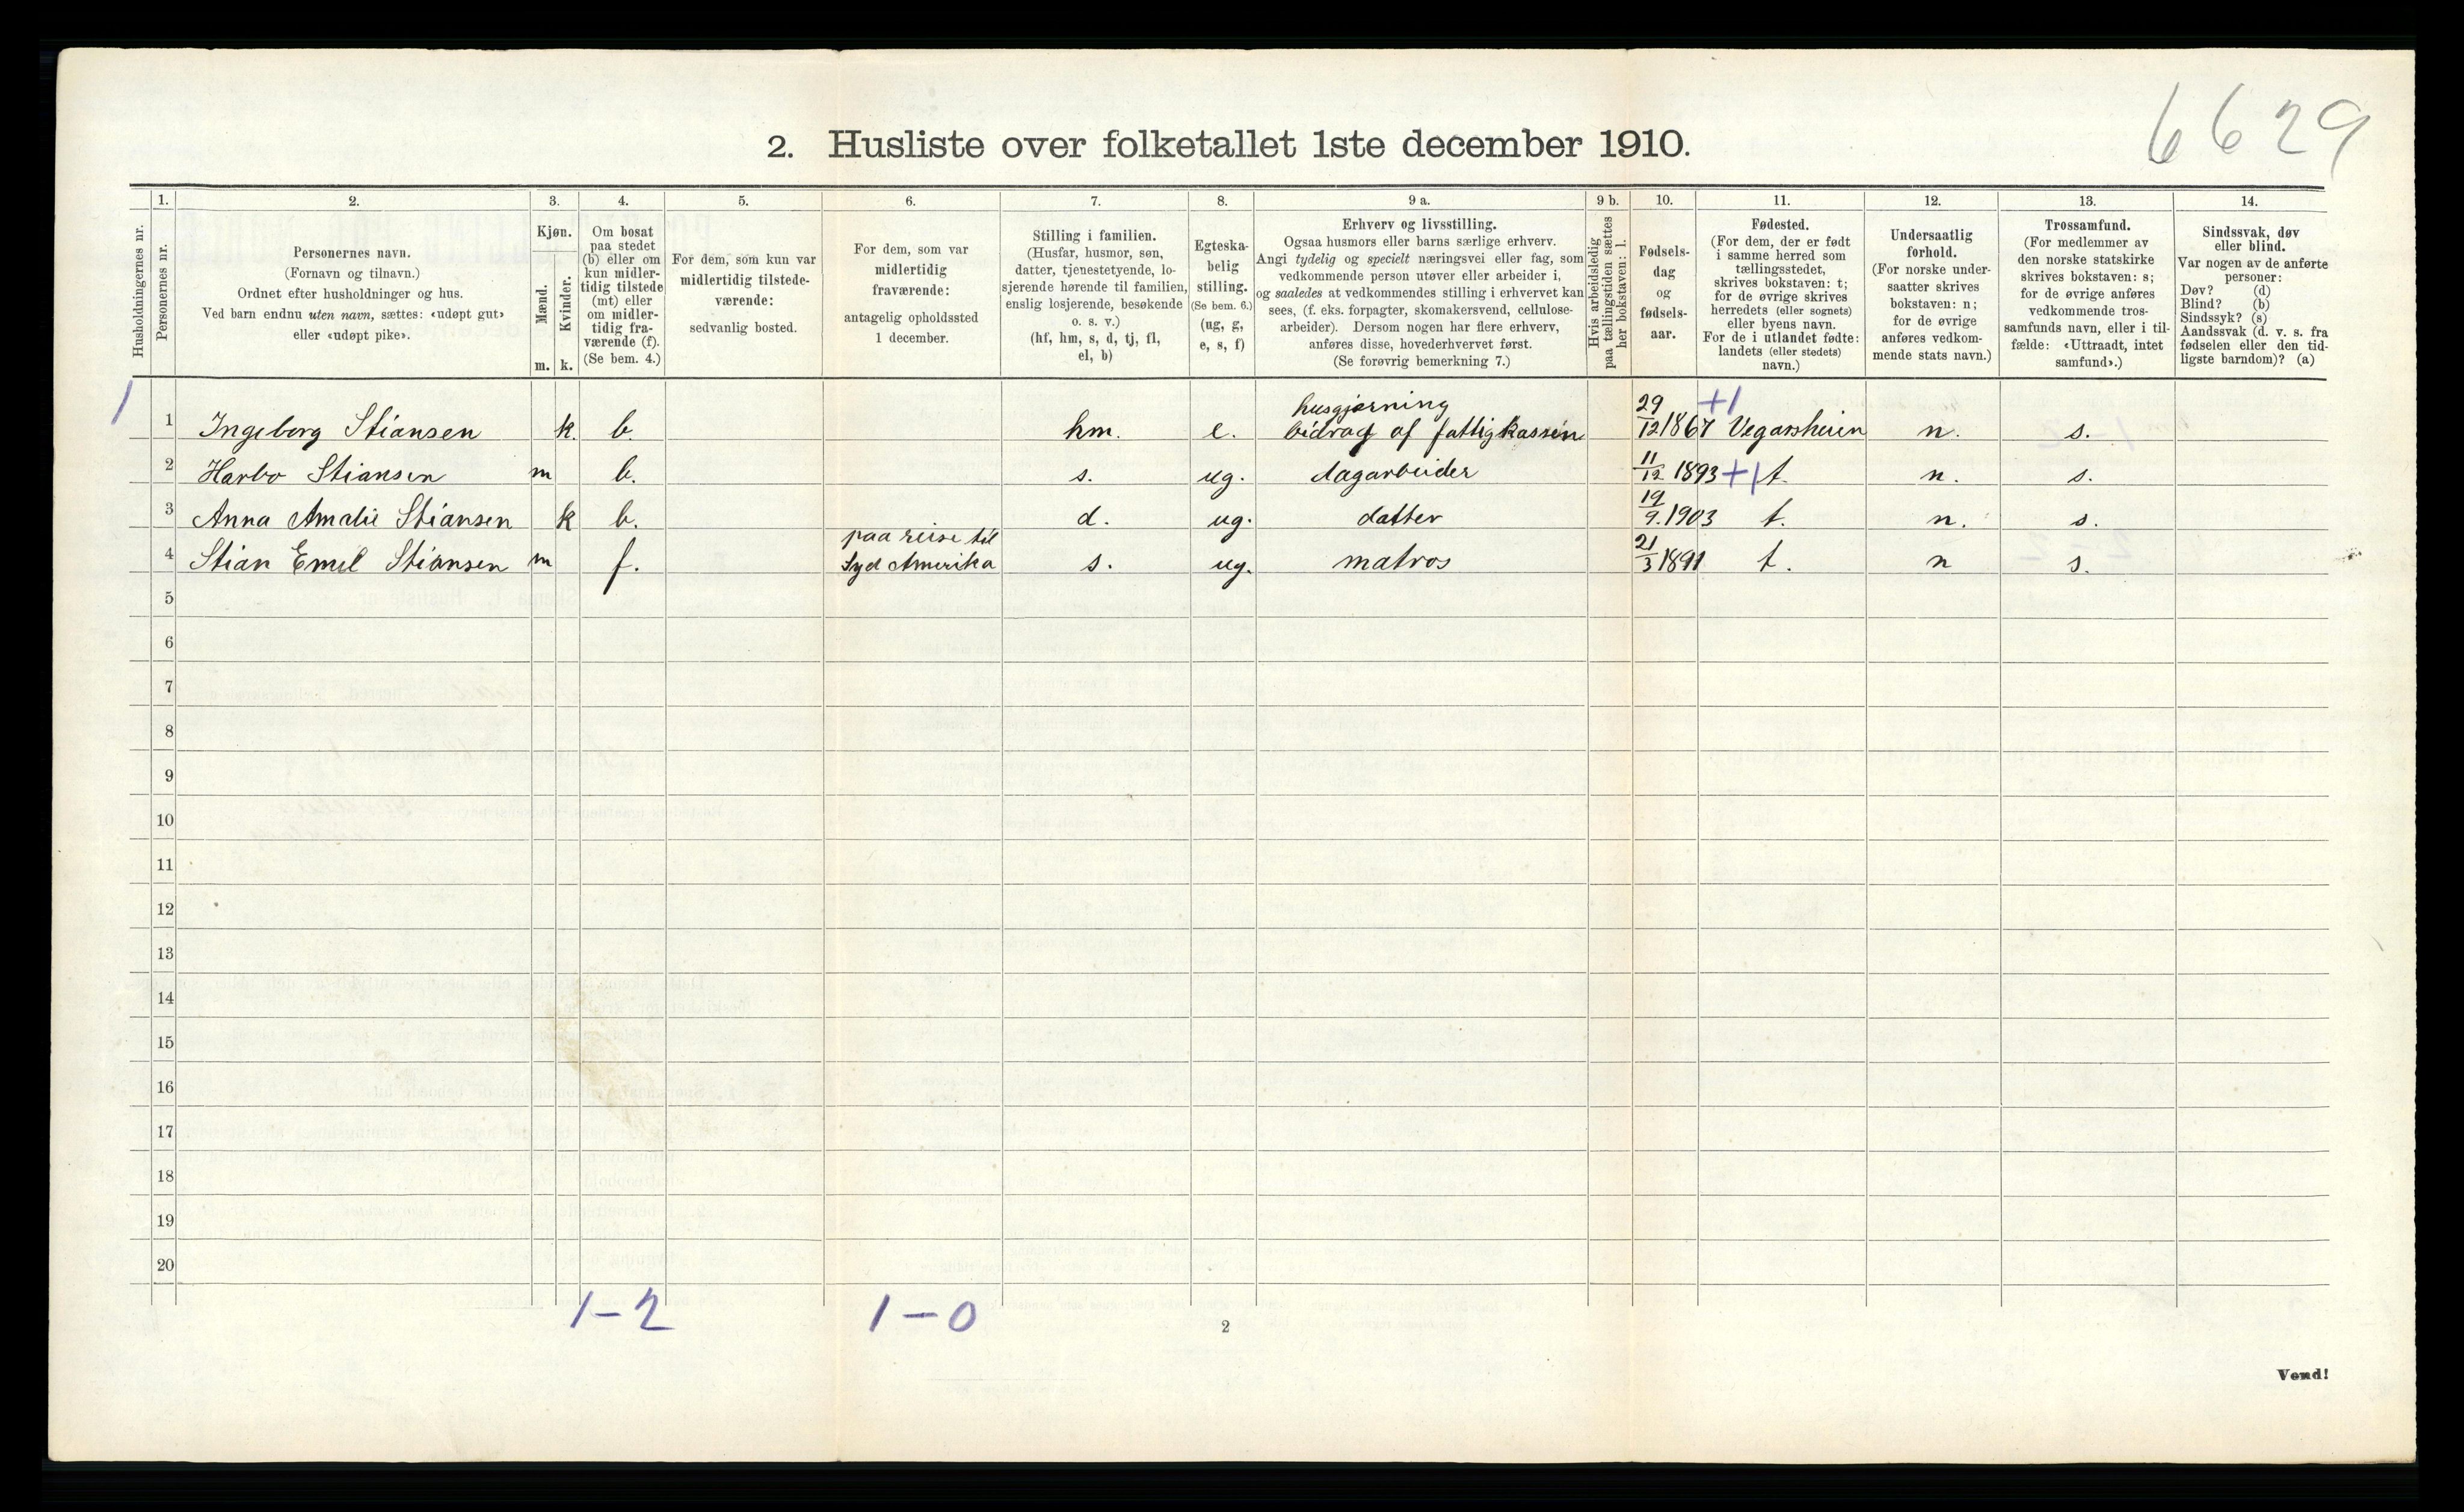 6629
2. Husliste over folketallet 1ste december 1910.
Husholdningernes nr.
1. Personernes nr.
2. Personernes navn.
(Fornavn og tilnavn.)
Ordnet efter husholdninger og hus.
Ved barn endnu uten navn, sættes: «udøpt gut»
eller «udøpt pike».
3. Kjøn.
Mænd. Kvinder.
m. k.
4. Om bosat
paa stedet
(b) eller om
kun midler-
tidig tilstede
(mt) eller
om midler-
tidig fra-
værende (f).
(Se bem. 4.)
5. For dem, som kun var
midlertidig tilstede-
værende:
sedvanlig bosted.
6. For dem, som var
midlertidig
fraværende:
antagelig opholdssted
1 december.
7. Stilling i familien.
(Husfar, husmor, søn,
datter, tjenestetyende, lo-
sjerende hørende til familien,
enslig losjerende, besøkende
o. s. v.)
(hf, hm, s, d, tj, fl,
el, b)
8. Egteska-
belig
stilling.
(Se bem. 6.)
(ug, g,
e, s, f)
9 a. Erhverv og livsstilling.
Ogsaa husmors eller barns særlige erhverv.
Angi tydelig og specielt næringsvei eller fag, som
vedkommende person utøver eller arbeider i,
og saaledes at vedkommendes stilling i erhvervet kan
sees, (f. eks. forpagter, skomakersvend, cellulose-
arbeider). Dersom nogen har flere erhverv,
anføres disse, hovederhvervet først.
(Se forøvrig bemerkning 7.)
9 b. Hvis arbeidsledig
paa tællingstiden sættes
her bokstaven: l.
10. Fødsels-
dag
og
fødsels-
aar.
11. Fødested.
(For dem, der er født
i samme herred som
tællingsstedet,
skrives bokstaven: t;
for de øvrige skrives
herredets (eller sognets)
eller byens navn.
For de i utlandet fødte:
landets (eller stedets)
navn.)
12. Undersaatlig
forhold.
(For norske under-
saatter skrives
bokstaven: n;
for de øvrige
anføres vedkom-
mende stats navn.)
13. Trossamfund.
(For medlemmer av
den norske statskirke
skrives bokstaven: s;
for de øvrige anføres
vedkommende tros-
samfunds navn, eller i til-
fælde: «Uttraadt, intet
samfund».)
14. Sindssvak, døv
eller blind.
Var nogen av de anførte
personer:
Døv? (d)
Blind? (b)
Sindssyk? (s)
Aandssvak (d. v. s. fra
fødselen eller den tid-
ligste barndom)? (a)
husgjerning 29 +1
1 1 Ingeborg Stiansen k. b. hm. e. bidrag af fattigkassen 12 1867 Vegarsheien n. s.
2 Harbo Stiansen m b. s. ug. dagarbeider 11/12 1893 +1 t. n. s.
3 Anna Amalie Stiansen k b. d. ug. datter 19/9. 1903 t. n. s.
paa reise til
4 Stian Emil Stiansen m f. Syd Amerika s. ug. matros 21/3 1891 t. n s.
5
6
7
8
9
10
11
12
13
14
15
16
17
18
19
20
1-2 1-0
2
Vend!